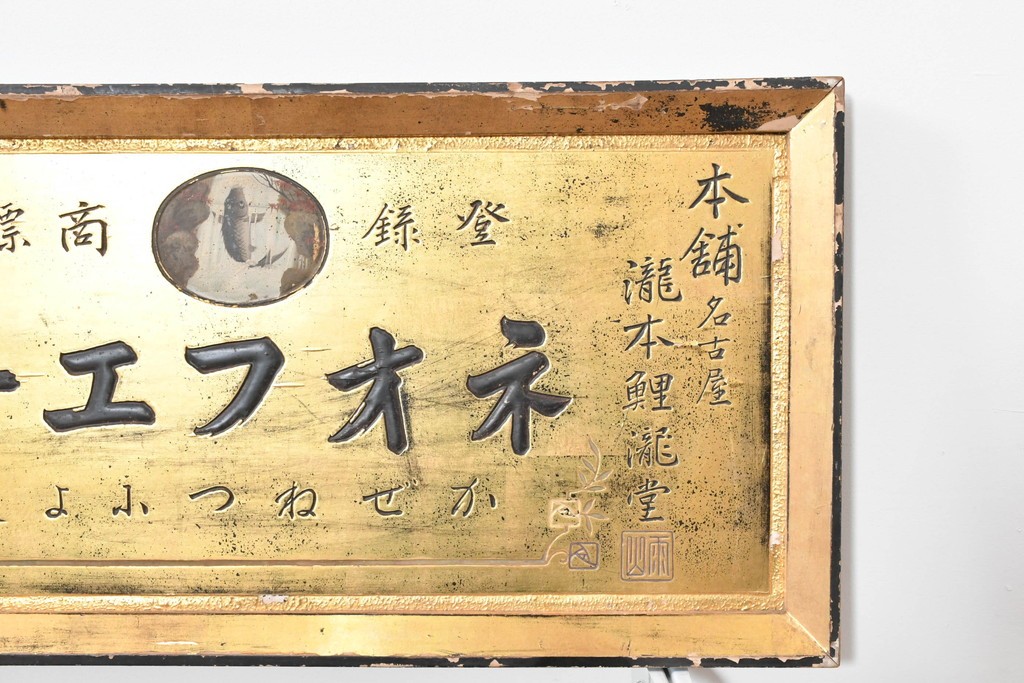 本舗 名古屋
瀧本鯉瀧堂
登錄商標
ネオフエー
かぜねつによ